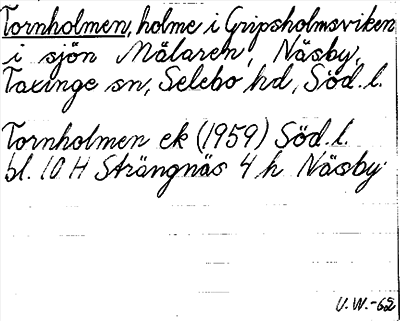 Tornholmen, holme i Gripsholmsviken
i sjön Mälaren, Näsby,
Taxinge sn, Selebo hd, Söd. l.
Tornholmen ek (1959) Söd. l.
bl. 10 H Strängnäs 4 h Näsby
V.W.-62